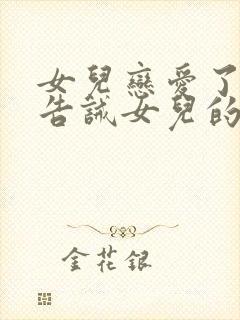 女兒戀愛了
告誡女兒的
金花銀